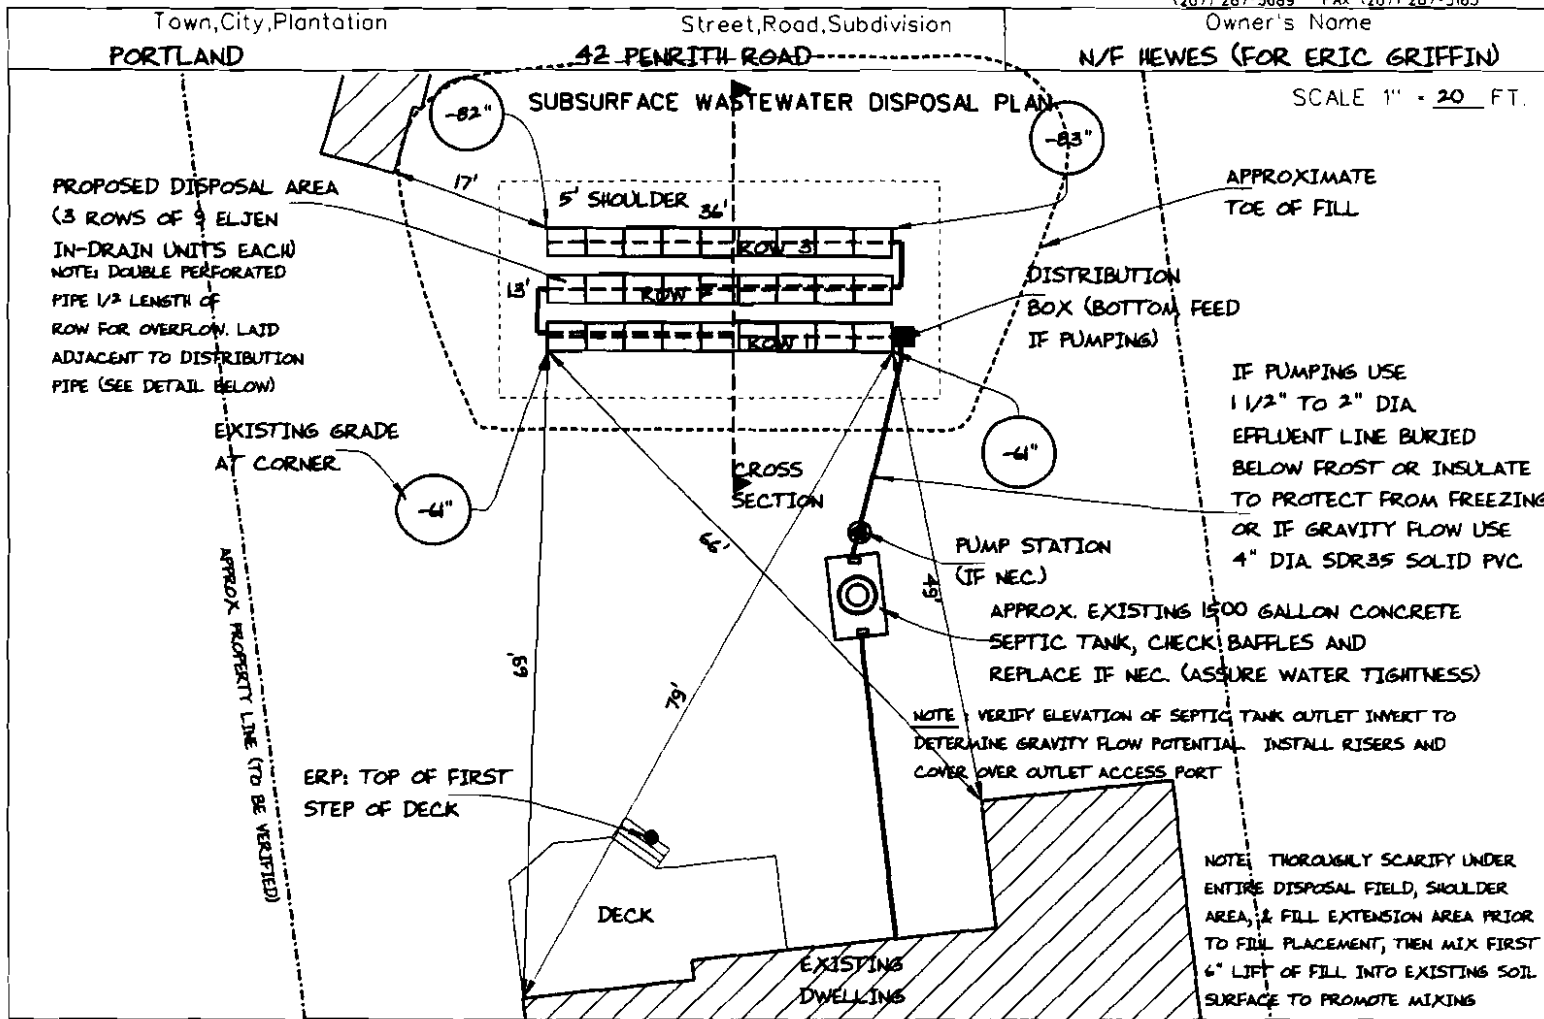 (207) 287-5689 FAX (207) 287-3165
Town,City,Plantation
Street,Road,Subdivision
Owner's Name
PORTLAND
42 PENRITH ROAD
N/F HEWES (FOR ERIC GRIFFIN)
SUBSURFACE WASTEWATER DISPOSAL PLAN
SCALE 1" = 20 FT.
-82"
-83"
17'
PROPOSED DISPOSAL AREA
(3 ROWS OF 9 ELJEN
IN-DRAIN UNITS EACH)
NOTE: DOUBLE PERFORATED
PIPE 1/2 LENGTH OF
ROW FOR OVERFLOW. LAID
ADJACENT TO DISTRIBUTION
PIPE (SEE DETAIL BELOW)
5' SHOULDER
36'
ROW 3
13'
ROW 2
ROW 1
APPROXIMATE
TOE OF FILL
DISTRIBUTION
BOX (BOTTOM FEED
IF PUMPING)
IF PUMPING USE
1 1/2" TO 2" DIA.
EFFLUENT LINE BURIED
BELOW FROST OR INSULATE
TO PROTECT FROM FREEZING
OR IF GRAVITY FLOW USE
4" DIA. SDR35 SOLID PVC
EXISTING GRADE
AT CORNER
-61"
-61"
CROSS
SECTION
66'
PUMP STATION
(IF NEC.)
49'
APPROX. EXISTING 1500 GALLON CONCRETE
SEPTIC TANK, CHECK BAFFLES AND
REPLACE IF NEC. (ASSURE WATER TIGHTNESS)
APPROX PROPERTY LINE (TO BE VERIFIED)
69'
79'
NOTE: VERIFY ELEVATION OF SEPTIC TANK OUTLET INVERT TO
DETERMINE GRAVITY FLOW POTENTIAL. INSTALL RISERS AND
COVER OVER OUTLET ACCESS PORT
ERP: TOP OF FIRST
STEP OF DECK
DECK
EXISTING
DWELLING
NOTE: THOROUGHLY SCARIFY UNDER
ENTIRE DISPOSAL FIELD, SHOULDER
AREA, & FILL EXTENSION AREA PRIOR
TO FILL PLACEMENT, THEN MIX FIRST
6" LIFT OF FILL INTO EXISTING SOIL
SURFACE TO PROMOTE MIXING